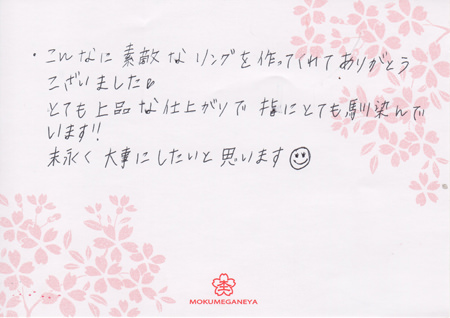 ・こんなに素敵なリングを作ってくれてありがとう
ございました。
とても上品な仕上がりで指にとても馴染んで
います!!
末永く大事にしたいと思います
MOKUMEGANEYA